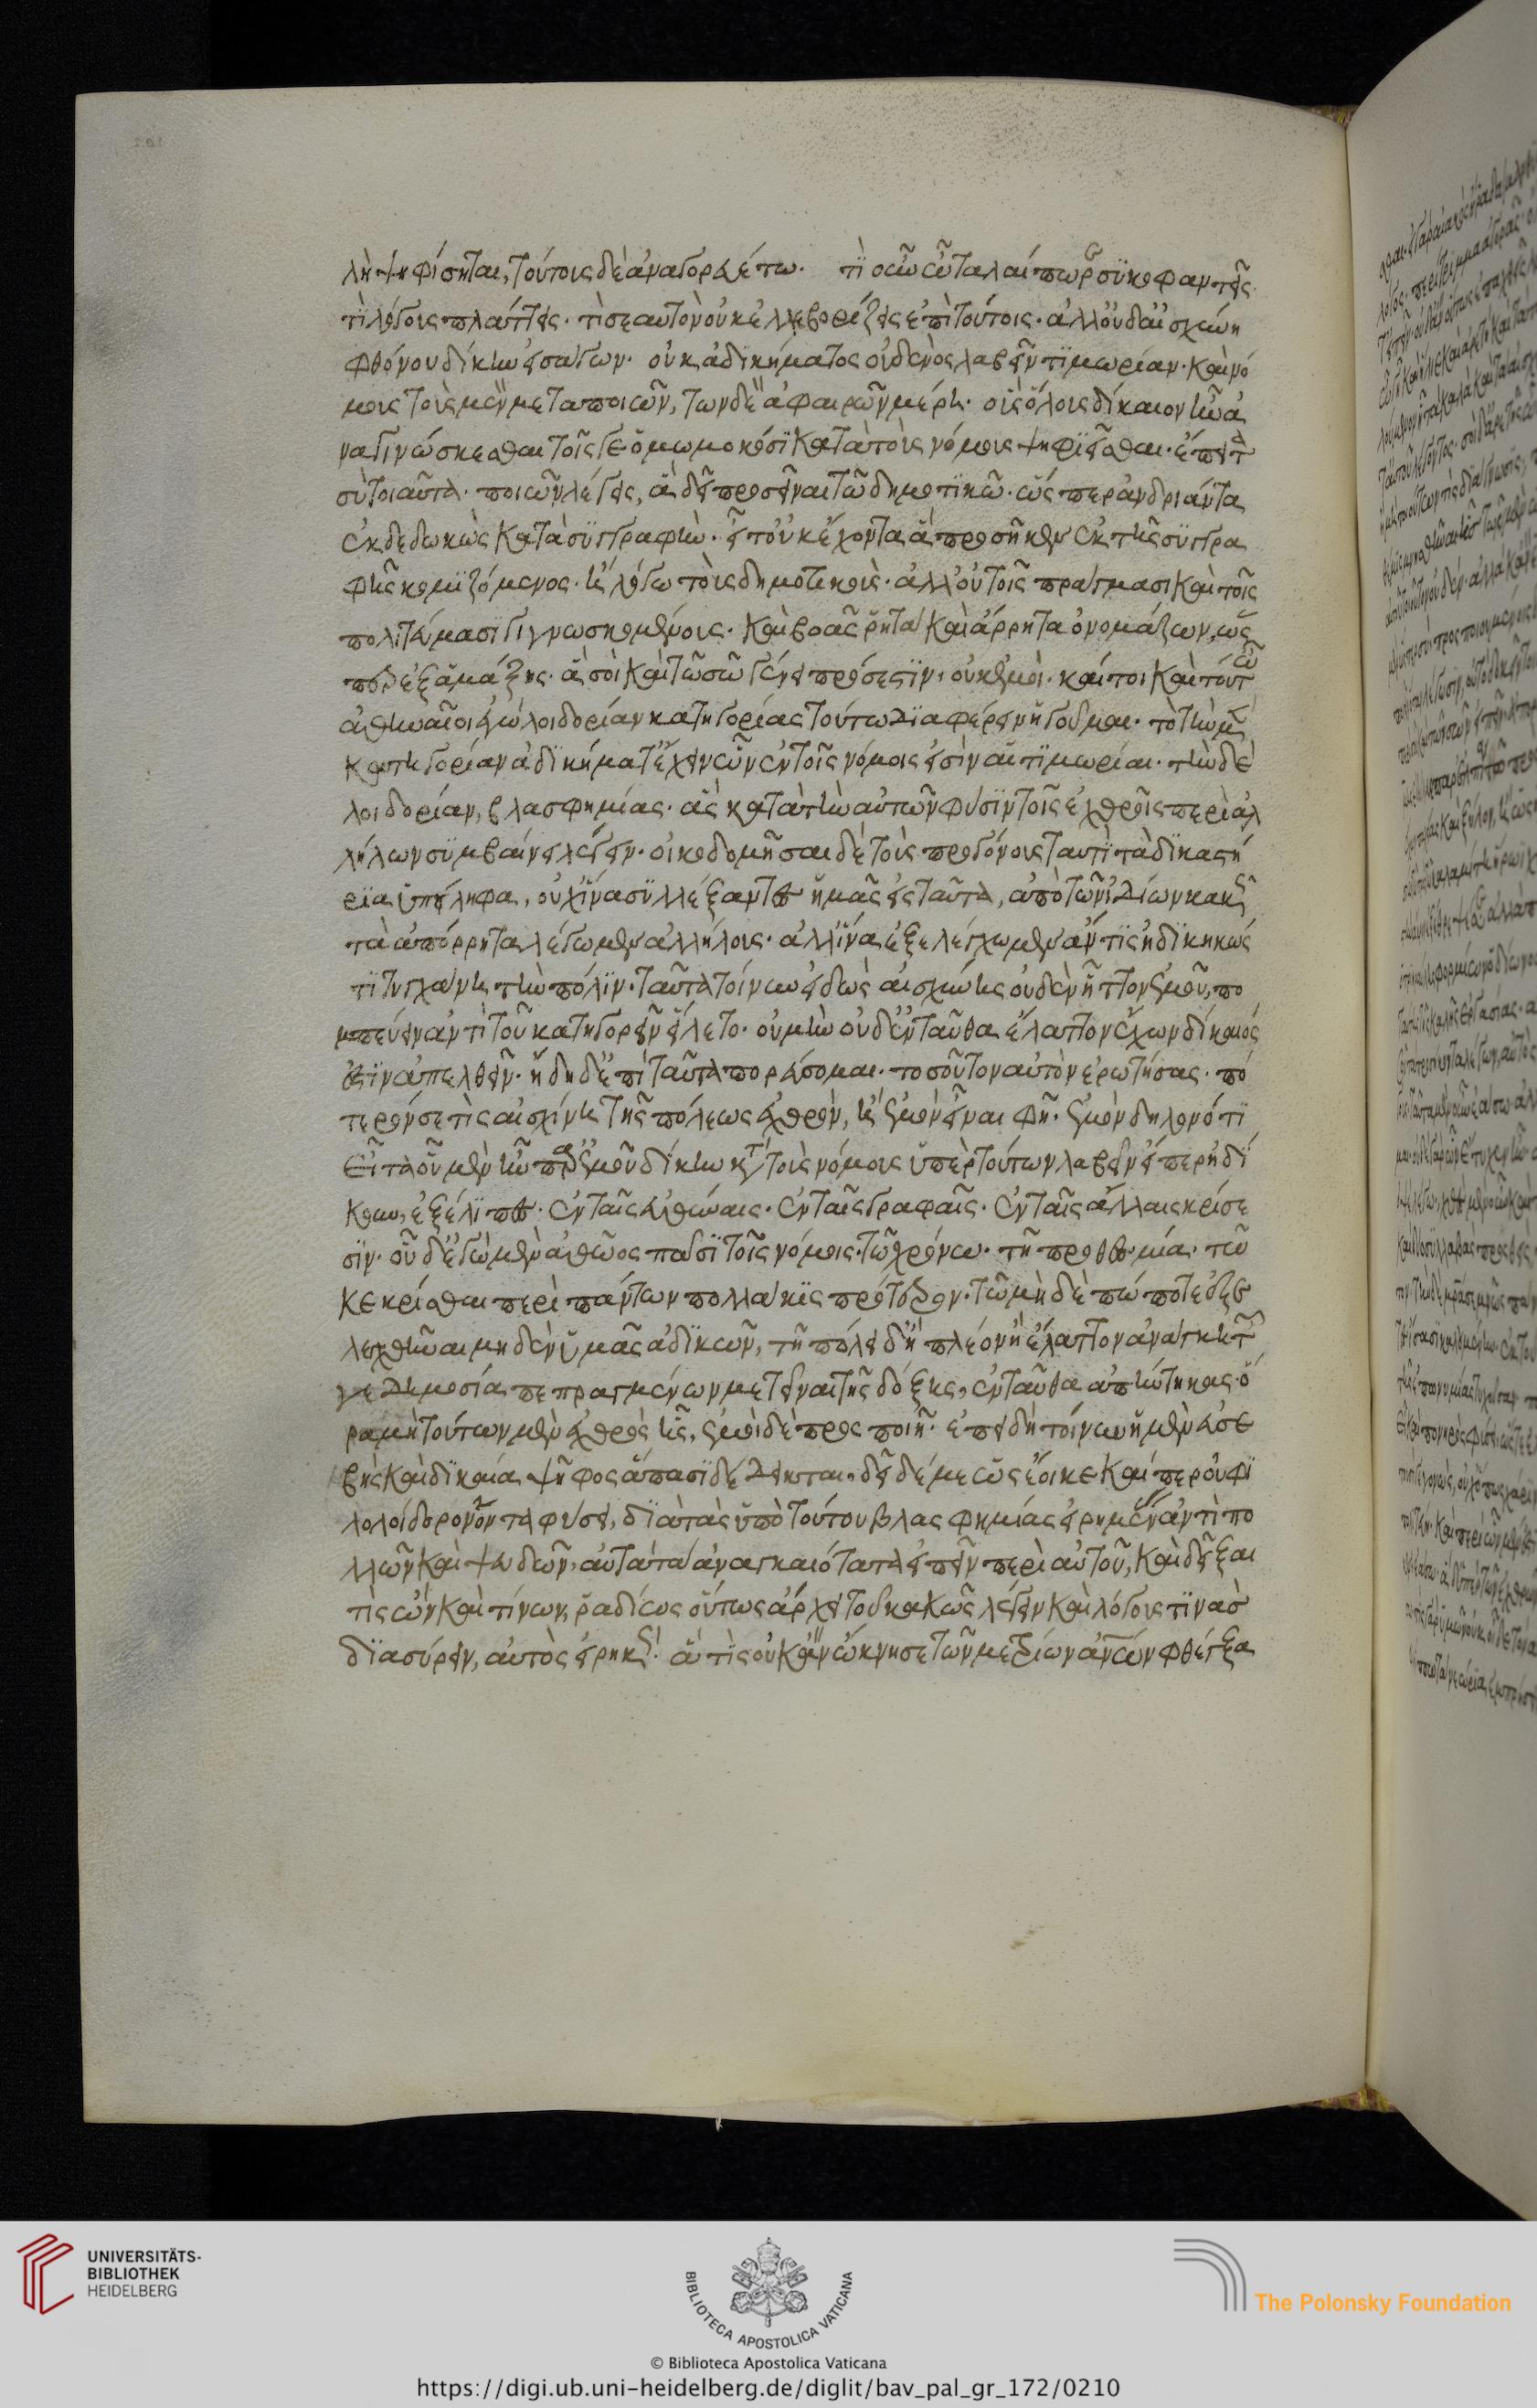 λὴ ψηφίσηται, τούτοις δὲ ἀναγορευέτω. τί οὖν ὦ ταλαίπωρε συκοφαντεῖς.
τί λόγους πλάττεις. τί σεαυτὸν οὐκ ἐλλεβορίζεις ἐπὶ τούτοις. ἀλλ' οὐδ' αἰσχύνῃ
φθόνου δίκην εἰσάγων. οὐκ ἀδικήματος οὐδενὸς λαβεῖν τιμωρίαν. καὶ νό
μους τοὺς μὲν μεταποιῶν, τῶν δὲ ἀφαιρῶν μέρη. οὓς ὅλους δίκαιον ἦν ἀ
ναγινώσκεσθαι τοῖς γε ὀμωμοκόσι κατὰ τοὺς νόμους ψηφιεῖσθαι. ἔπειτα
σὺ τοιαῦτα ποιῶν λέγεις, ἃ δεῖ προσεῖναι τῷ δημοτικῷ. ὥσπερ ἀνδριάντα
ἐκδεδωκὼς κατὰ συγγραφὴν. εἶτ' οὐκ ἔχοντα ἃ προσῆκεν ἐκ τῆς συγγρα
φῆς κομιζόμενος. ἢ λόγῳ τοὺς δημοτικοὺς. ἀλλ' οὐ τοῖς πράγμασι καὶ τοῖς
πολιτεύμασι γιγνωσκομένους. καὶ βοᾷς ῥητὰ καὶ ἄρρητα ὀνομάζων, ὥς
περ ἐξ ἁμάξης. ἃ σοὶ καὶ τῷ σῷ γένει πρόσεστιν. οὐκ ἐμοὶ. καίτοι καὶ τοῦτ' ὦ
ἀθηναῖοι ἐγὼ λοιδορίαν κατηγορίας τούτῳ διαφέρειν ἡγοῦμαι. τὸ τὴν μὲν
κατηγορίαν ἀδικήματ' ἔχειν ὧν ἐν τοῖς νόμοις εἰσὶν αἱ τιμωρίαι. τὴν δὲ
λοιδορίαν, βλασφημίας. ἃς κατὰ τὴν αὑτῶν φύσιν τοῖς ἐχθροῖς περὶ ἀλ
λήλων συμβαίνει λέγειν. οἰκοδομῆσαι δὲ τοὺς προγόνους ταυτὶ τὰ δικαστή
ρια ὑπείληφα, οὐχ ἵνα συλλέξαντες ἡμᾶς εἰς ταῦτα, ἀπὸ τῶν ἰδίων κακῶς
τὰ ἀπόρρητα λέγωμεν ἀλλήλους. ἀλλ' ἵνα ἐξελέγχωμεν ἄν τις ἠδικηκώς
τι τυγχάνῃ τὴν πόλιν. ταῦτα τοίνυν εἰδὼς αἰσχίνης οὐδὲν ἧττον ἐμοῦ, πο
μπεύειν ἀντὶ τοῦ κατηγορεῖν εἵλετο. οὐ μὴν οὐδ' ἐνταῦθα ἔλαττον ἔχων δίκαιός
ἐστιν ἀπελθεῖν. ἤδη δ' ἐπὶ ταῦτα πορεύσομαι. τοσοῦτον αὐτὸν ἐρωτήσας. πό
τερόν σέ τις αἰσχίνη τῆς πόλεως ἐχθρόν, ἢ ἐμὸν εἶναι φῇ. ἐμὸν δηλονότι
Εἶτα οὗ μὲν ἦν παρ' ἐμοῦ δίκην κατὰ τοὺς νόμους ὑπὲρ τούτων λαβεῖν εἴπερ ἠδί
κουν, ἐξέλιπες. ἐν ταῖς εὐθύναις. ἐν ταῖς γραφαῖς. ἐν ταῖς ἄλλαις κρίσε
σιν. οὗ δ' ἐγὼ μὲν ἀθῷος πᾶσι τοῖς νόμοις. τῷ χρόνῳ. τῇ προθεσμίᾳ. τῷ
κεκρίσθαι περὶ πάντων πολλάκις πρότερον. τῷ μηδὲ πώποτε ἐξε
λεγχθῆναι μηδὲν ὑμᾶς ἀδικῶν, τῇ πόλει δ' ἢ πλέον ἢ ἔλαττον ἀνάγκη τῶν
γε δημοσίᾳ πεπραγμένων μετεῖναι τῆς δόξης, ἐνταῦθα ἀπήντηκας. ὅ
ρα μὴ τούτων μὲν ἐχθρὸς ᾖς, ἐμοὶ δὲ προσποιῇ. ἐπειδὴ τοίνυν ἡ μὲν εὐσε
βὴς καὶ δικαία ψῆφος ἅπασι δέδεικται, δεῖ δέ με ὡς ἔοικε καίπερ οὐ φι
λολοίδορον ὄντα φύσει, διὰ τὰς ὑπὸ τούτου βλασφημίας εἰρημένας ἀντὶ πο
λλῶν καὶ ψευδῶν, αὐτὰ τὰ ἀναγκαιότατα εἰπεῖν περὶ αὐτοῦ, καὶ δεῖξαι
τίς ὢν καὶ τίνων, ῥᾳδίως οὕτως ἄρχει τοῦ κακῶς λέγειν καὶ λόγους τινὰς
διασύρειν, αὐτὸς εἰρηκὼς. ἃ τίς οὐκ ἂν ὤκνησε τῶν μετρίων ἀνθρώπων φθέγξα
UNIVERSITÄTS-
BIBLIOTHEK
HEIDELBERG
BIBLIOTECA APOSTOLICA VATICANA
The Polonsky Foundation
© Biblioteca Apostolica Vaticana
https://digi.ub.uni-heidelberg.de/diglit/bav_pal_gr_172/0210